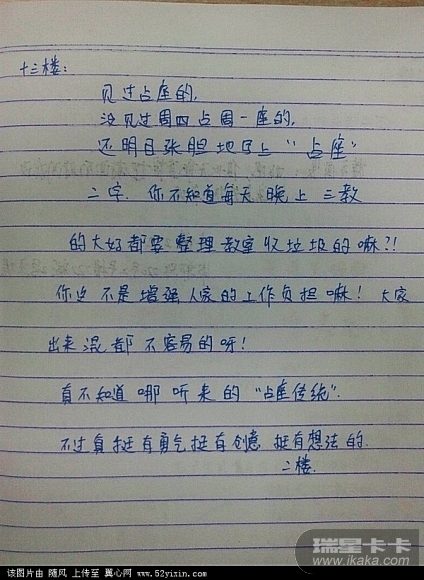 十三楼:
见过占座的,
没见过周四占周一座的,
还明目张胆地写上“占座”
二字. 你不知道每天晚上三教
的大妈都要整理教室收垃圾的嘛?!
你这不是增强人家的工作负担嘛! 大家
出来混都不容易的呀!
真不知道哪听来的“占座传统”.
不过真挺有勇气挺有创意 挺有想法的.
二楼.
瑞星卡卡
www.ikaka.com
该图片由 随风 上传至 翼心网 www.52yixin.com